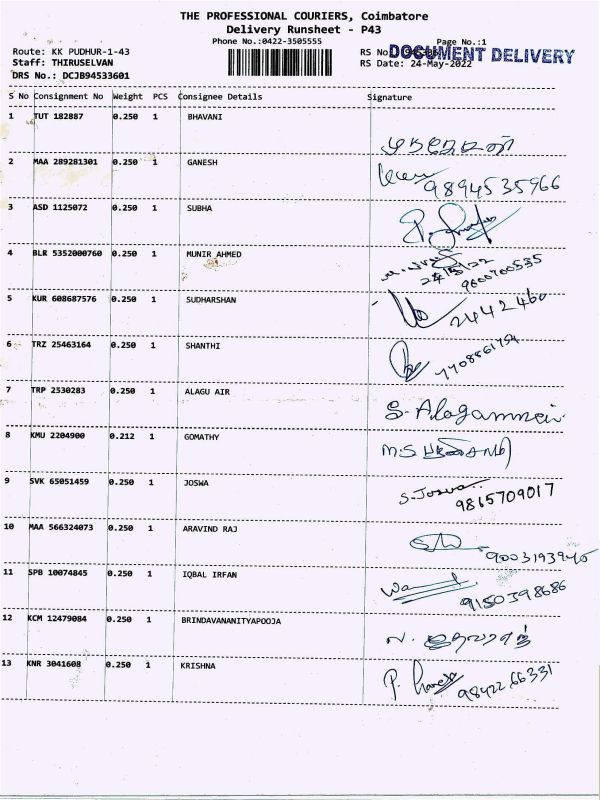 THE PROFESSIONAL COURIERS, Coimbatore
Delivery Runsheet - P43
Phone No.:0422-3505555
Page No.:1
Route: KK PUDHUR-1-43
RS No
DOCUMENT DELIVERY
Staff: THIRUSELVAN
RS Date: 24-May-2022
DRS No.: DCJB94533601
S No Consignment No Weight PCS Consignee Details Signature
1 TUT 182887 0.250 1 BHAVANI
2 MAA 289281301 0.250 1 GANESH 9894535966
3 ASD 1125072 0.250 1 SUBHA
4 BLR 5352000760 0.250 1 MUNIR AHMED
24/5/22
9600700535
5 KUR 608687576 0.250 1 SUDHARSHAN 2442460
6 TRZ 25463164 0.250 1 SHANTHI
7 TRP 2530283 0.250 1 ALAGU AIR
8 KMU 2204900 0.212 1 GOMATHY
9 SVK 65051459 0.250 1 JOSWA S. Joswa
9865709017
10 MAA 566324073 0.250 1 ARAVIND RAJ
11 SPB 10074845 0.250 1 IQBAL IRFAN
9150398686
12 KCM 12479084 0.250 1 BRINDAVANANITYAPOOJA
13 KNR 3041608 0.250 1 KRISHNA
98422 66331